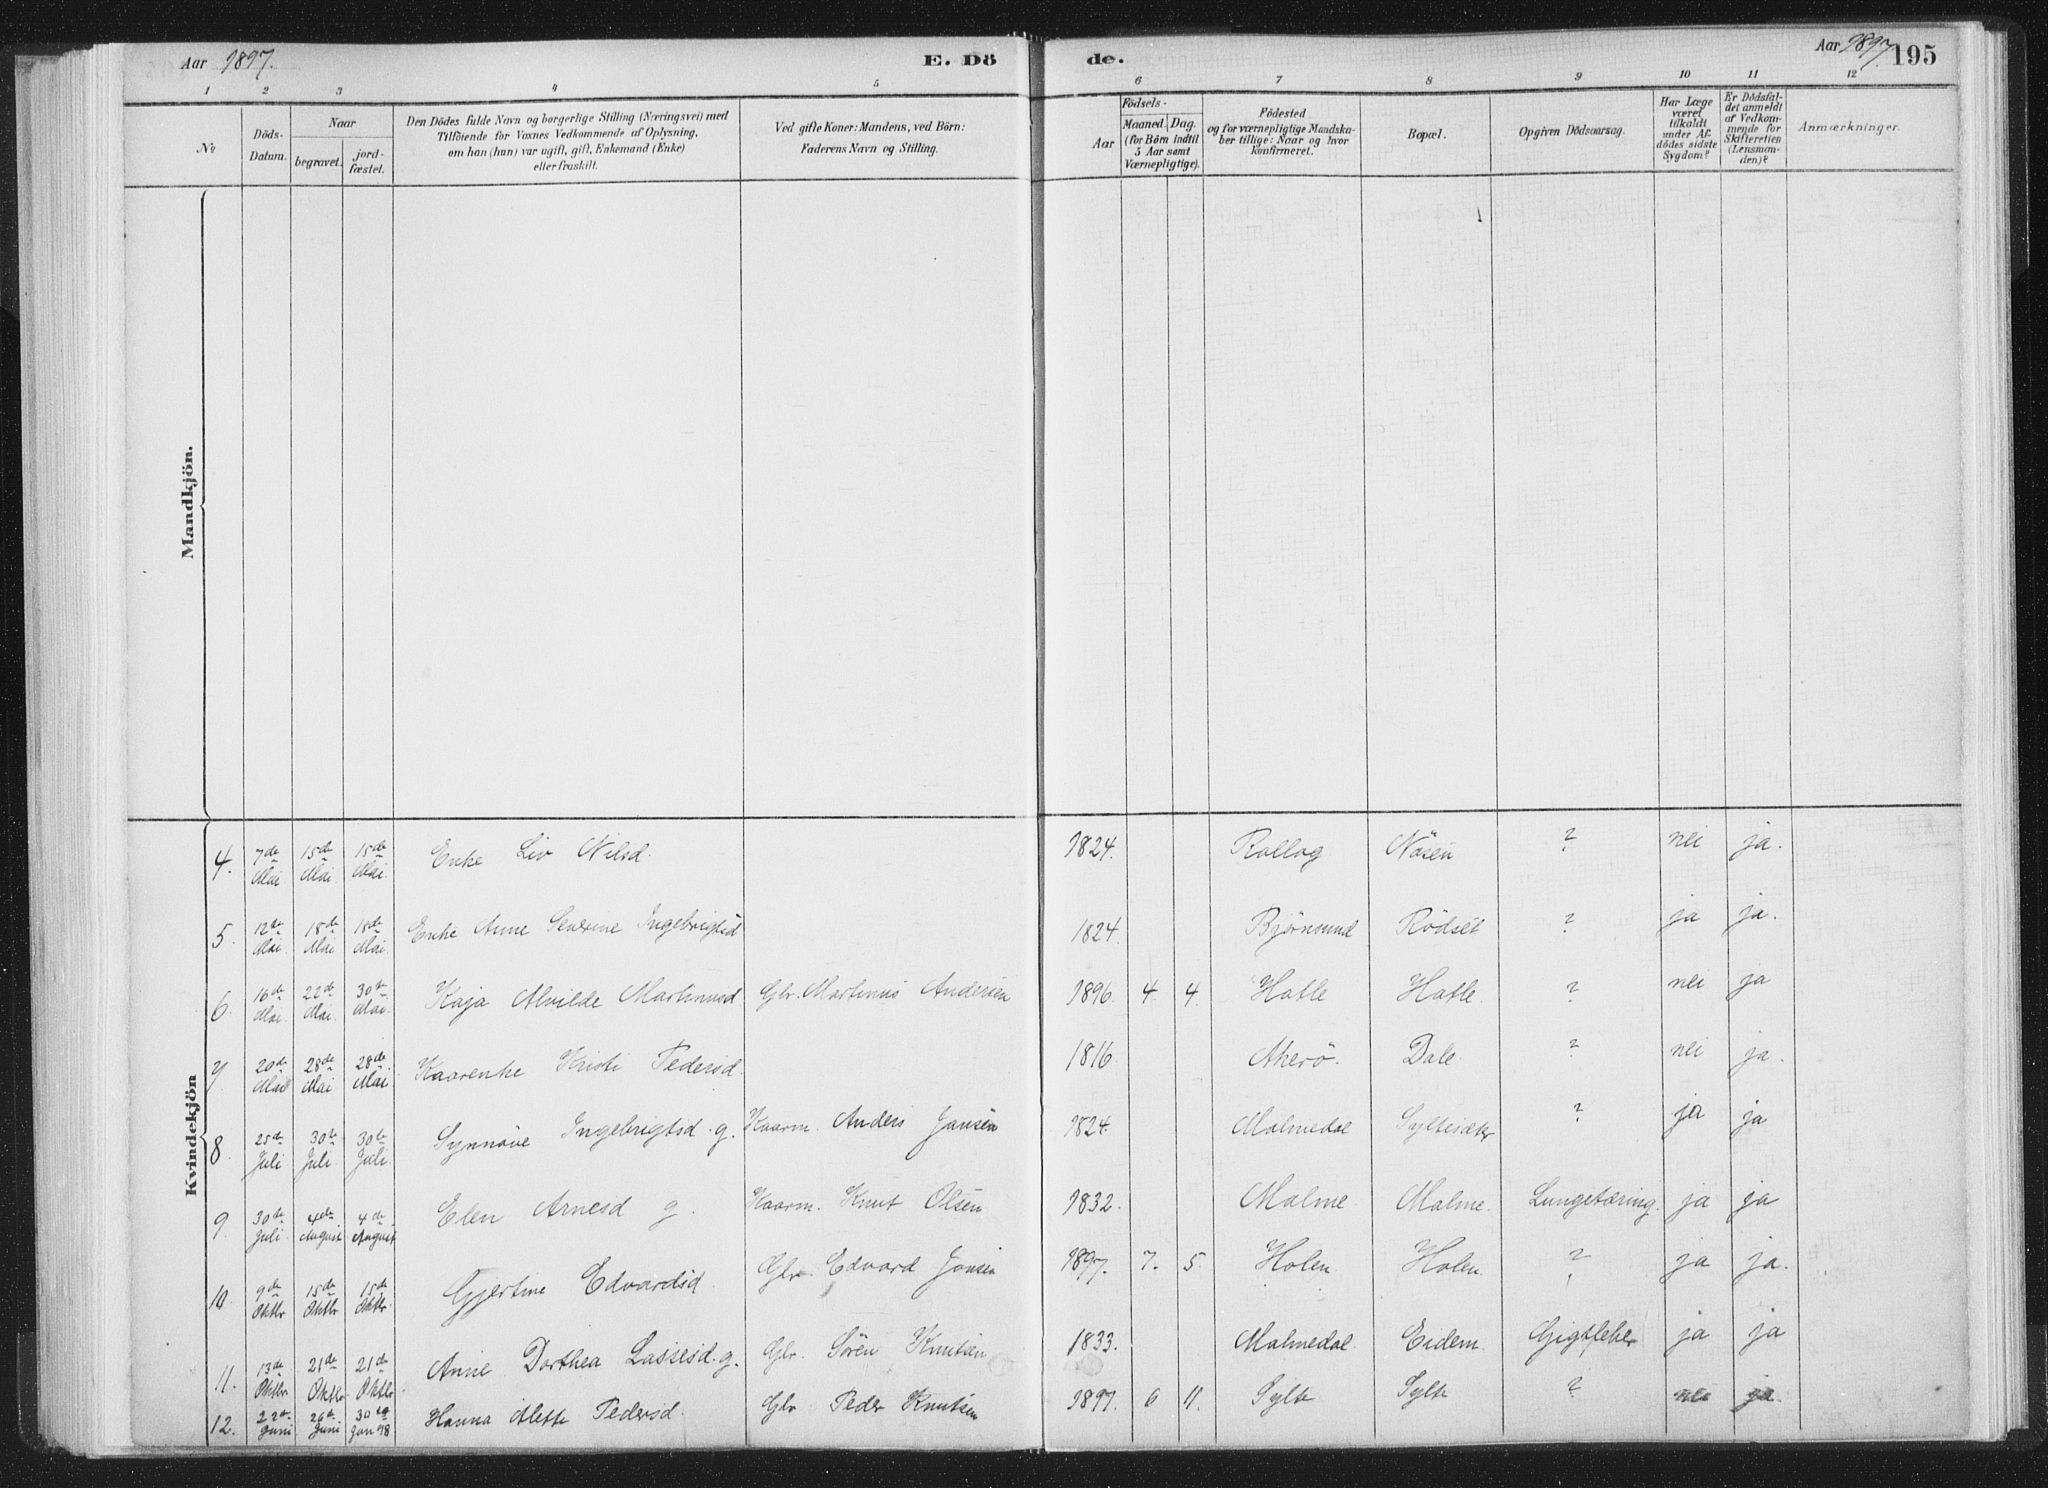 Aar 1897. E. Dö de. Aar 1897. 195
1 2 3 4 5 6 7 8 9 10 11 12
No
Döds-Datum.
Naar
begravet.
jordfæstet.
Den Dödes fulde Navn og borgerlige Stilling (Næringsvei) med
Tilföiende for Voxnes Vedkommende af Oplysning,
om han (hun) var ugift, gift, Enkemand (Enke)
eller fraskilt.
Ved gifte Koner: Mandens, ved Börn:
Faderens Navn og Stilling.
Födsels-
Aar
Maaned. Dag.
(for Börn indtil
5 Aar samt
Værnepligtige).
Födested
og for værnepligtige Mandska-
ber tillige: Naar og hvor
konfirmeret.
Bopæl.
Opgiven Dödsaarsag.
Har Læge
været
tilkaldt
under Af-
dödes sidste
Sygdom?
Er Dödsfal-
det anmeldt
af Vedkom-
mende for
Skifteretten
(Lensman-
den)?
Anmærkninger.
Mandkjön.
Kvindekjön
4. 7de Mai 15de Mai 15de Mai Enke Liv Nilsd. 1824. Rollag Nösen ? nei ja.
5. 12de Mai 18de Mai 18de Mai Enke Anne Severine Ingebrigtsd 1824. Björnsund Rödset ? ja ja.
6. 16de Mai. 22de Mai. 30de Mai. Kaja Alvilde Martinusd. Gbr. Martinus Andersen 1896. 4. 4. Hatle Hatle. ? nei ja
7. 20de Mai 28de Mai 28de Mai Kaarenke Kristi Pedersd. 1816. Akerö. Dale. ? nei ja.
8. 25de Juli 30te Juli. 30te Juli. Synnöve Ingebrigtsd. g. Kaarm. Anders Jansen 1824. Malmedal Syltesæter ? ja ja
9. 30de Juli. 4de August 4de August Elen Arnesd g. Kaarm. Knut Olsen 1832. Malme. Malme. Lungetæring. ja ja
10. 9de Oktbr 15de Oktbr 15de Oktbr. Gjertine Edvardsd. Gbr. Edvard Jansen 1897. 7. 5. Holen Holen. ? ja ja.
11. 13de Oktbr 21de Oktbr 21de Oktbr. Anne Dorthea Lassesd. g. Gbr. Sören Knutsen 1833. Malmedal Eidem. Gigtfeber ja ja
12. 22de Juni 26de Juni 30te Jan 98 Hanna Alette Pedersd. Gbr Peder Knutsen 1897. 6 11. Sylte Sylte ? nei ja.